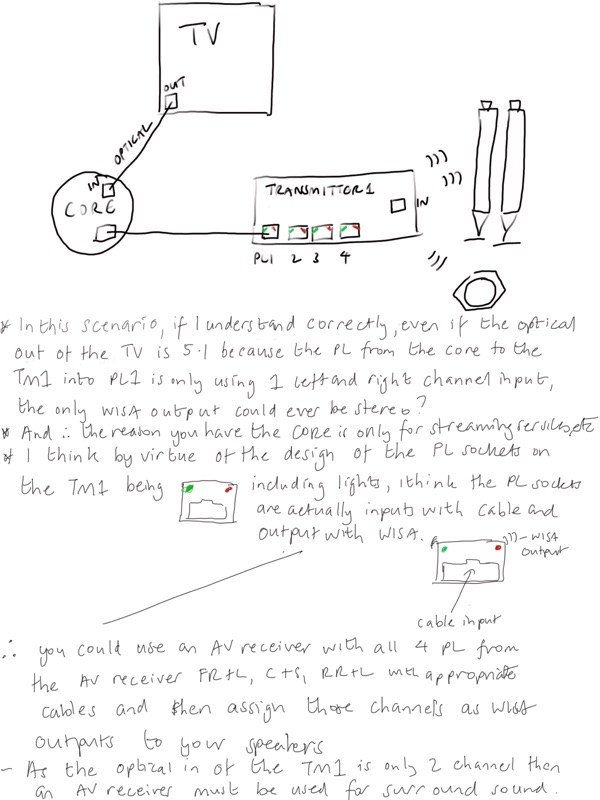 TV
OUT
OPTICAL
IN
CORE
TRANSMITTER 1
IN
PL1 2 3 4
* In this scenario, if I understand correctly, even if the optical
out of the TV is 5.1 because the PL from the core to the
TM1 into PL1 is only using 1 left and right channel input,
the only WISA output could ever be stereo?
* And ∴ the reason you have the CORE is only for streaming services, etc
* I think by virtue of the design of the PL sockets on
the TM1 being including lights, i think the PL sockets
are actually inputs with cable and
output with WISA.
WISA
output
cable input
∴ you could use an AV receiver with all 4 PL from
the AV receiver FR+L, C+S, RR+L with appropriate
cables and then assign those channels as WISA
outputs to your speakers
- As the optical in of the TM1 is only 2 channel then
an AV receiver must be used for surround sound.